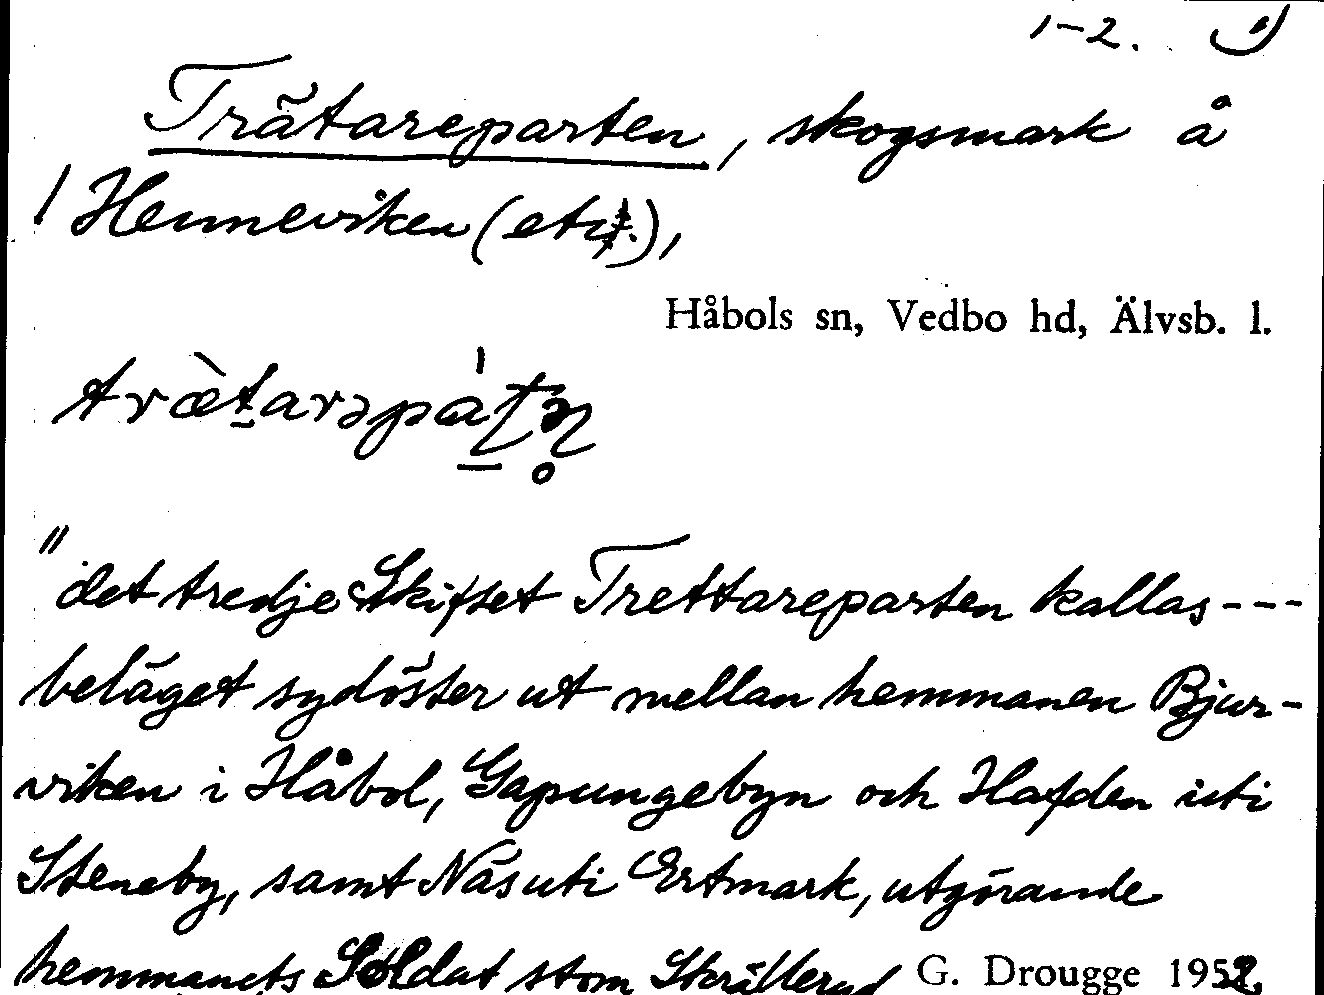 1-2. 1)
Trätareparten, skogsmark å
/ Henneviken (etc.),
Håbols sn, Vedbo hd, Älvsb. l.
"det tredje Skiftet Trettareparten kallas ---
beläget sydöster ut mellan hemmanen Bjur-
viken i Håbol, Gapungebyn och Hafden uti
Steneby, samt Näs uti Ertmark, utgörande
hemmanets Soldat stom Skrällerud G. Drougge 1952